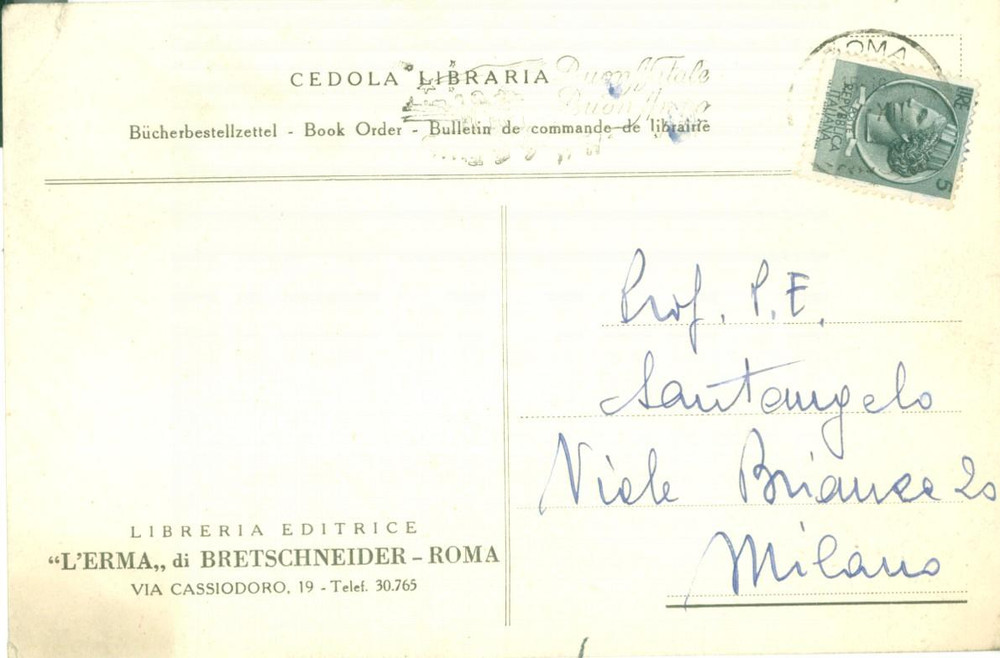 CEDOLA LIBRARIA
Buon Natale
Buon Anno
Bücherbestellzettel - Book Order - Bulletin de commande de librairie
ROMA
LIRE 5
REPVBBLICA
ITALIANA
Prof. P. E.
Santangelo
Viale Brianza 20
Milano
LIBRERIA EDITRICE
“L'ERMA„ di BRETSCHNEIDER - ROMA
VIA CASSIODORO, 19 - Telef. 30.765